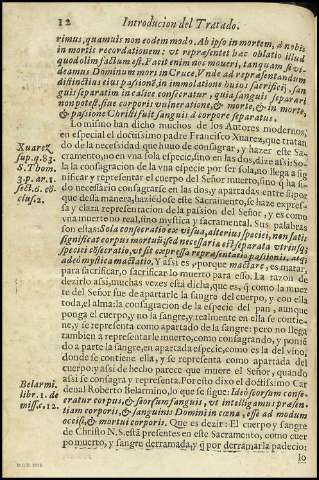 12 Introducion del Tratado.
rimus, quamuis non eodem modo. Ab ipso in mortem, à nobis
in mortis recordationem: vt repræsentet hac oblatio illud
quod olim factum est. Facit enim nos moueri, tanquam si vi-
deamus Dominum mori in Cruce. Vnde ad repræsentandum
distinctius eius passionē, in immolatione huius sacrificij, san
guis separatim in calice consecratur, quia sanguis separari
non potest, sine corporis vulneratione, & morte, & in morte,
& passione Christi fuit sanguis à corpore separatus.
Lo mismo han dicho muchos de los Autores modernos,
en especial el doctissimo padre Francisco Xuarez, que tratan
do de la necessidad que huuo de consagrar, y hazer este Sa-
cramento, no en vna sola especie, sino en las dos, dize assi: So-
la la consagracion de la vna especie por ser sola, no llega a sig
nificar y representar el cuerpo del Señor muerto, sino q̃ ha si-
do necessario consagrarse en las dos, y apartadas entre si por
que desta manera, haziēdose este Sacramento, se haze expres-
sa y clara representacion de la passion del Señor, y es como
vna muerte no real, sino mystica y sacramental. Sus palabras
son estas: Sola consecratio ex vi sua, alterius speciei, non satis
significat corpus mortuū, sed necessaria est separata vtriusq;
speciei cōsecratio, vt sit expressa repræsentatio passionis, atq;
adeò mystica mactatio. Y assi es, porque mactare, es matar,
para sacrificar, o sacrificar lo muerto para esso. La razon de
dezirlo assi, muchas vezes està dicha, que es, q̃ como la muer
te del Señor fue de apartarle la sangre del cuerpo, y con ella
toda, el alma: la consagracion de la especie del pan, aunque
ponga el cuerpo, y no la sangre, y realmente en ella se contie-
ne, y se representa como apartado de la sangre: pero no llega
tambien a representarle muerto, como consagrando, y poniē
do a parte la sangre, en apartada especie, como es la del vino,
donde se contiene ella, y se representa como apartada del
cuerpo: y assi de hecho parece que muere el Señor, quando
assi se consagra y representa. Por esto dixo el doctissimo Car
denal Roberto Belarmino, lo que se sigue: Ideò seorsum conse-
cratur corpus, & seorsum sanguis, vt intelligamus præsen-
tiam corporis, & sanguinis Domini in cœna, esse ad modum
occisi, & mortui corporis. Que es dezir: El cuerpo y sangre
de Christo N. S. està presentes en este Sacramento, como cuer
po muerto, y sangre derramada, y q̃ por derramarla padecio:
lo
Xuarez
sup. q. 83.
S. Thom.
3. p. ar. 1.
Belarmi.
libr. 1. de
misse. 12.